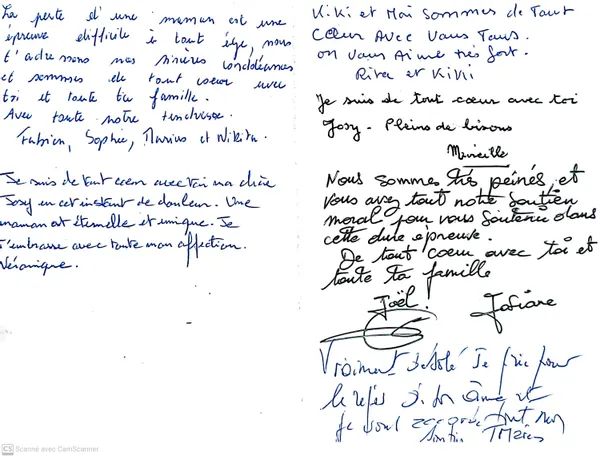 La perte d'une maman est une
épreuve difficile à tout âge, nous
t'adressons nos sincères condoléances
et sommes de tout coeur avec
toi et toute ta famille.
Avec toute notre tendresse.
Fabien, Sophie, Marius et Nikita.
Je suis de tout coeur avec toi ma chère
Josy en cet instant de douleur. Une
maman est éternelle et unique. Je
t'embrasse avec toute mon affection.
Véronique.
Kiki et Moi sommes de Tout
Cœur Avec Vous Tous.
on Vous Aime très fort.
Rita et Kiki
Je suis de tout coeur avec toi
Josy - Pleins de bisous
Mireille
Nous sommes très peinés et
vous avez tout notre soutien
moral pour vous soutenir dans
cette dure épreuve.
De tout coeur avec toi et
toute ta famille
Joël. Josiane
Vraiment désolé Je prie pour
le repos de son âme et
je vous accorde tout mon
soutien
CS Scanné avec CamScanner